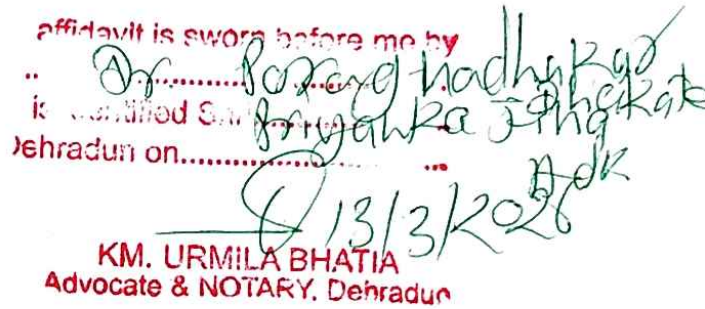 affidavit is sworn before me by
Dr. Parag Madhukar
Dhakate
is identified S
Priyanka Singh
Dehradun on
Adv
13/3/2026
KM. URMILA BHATIA
Advocate & NOTARY. Dehradun